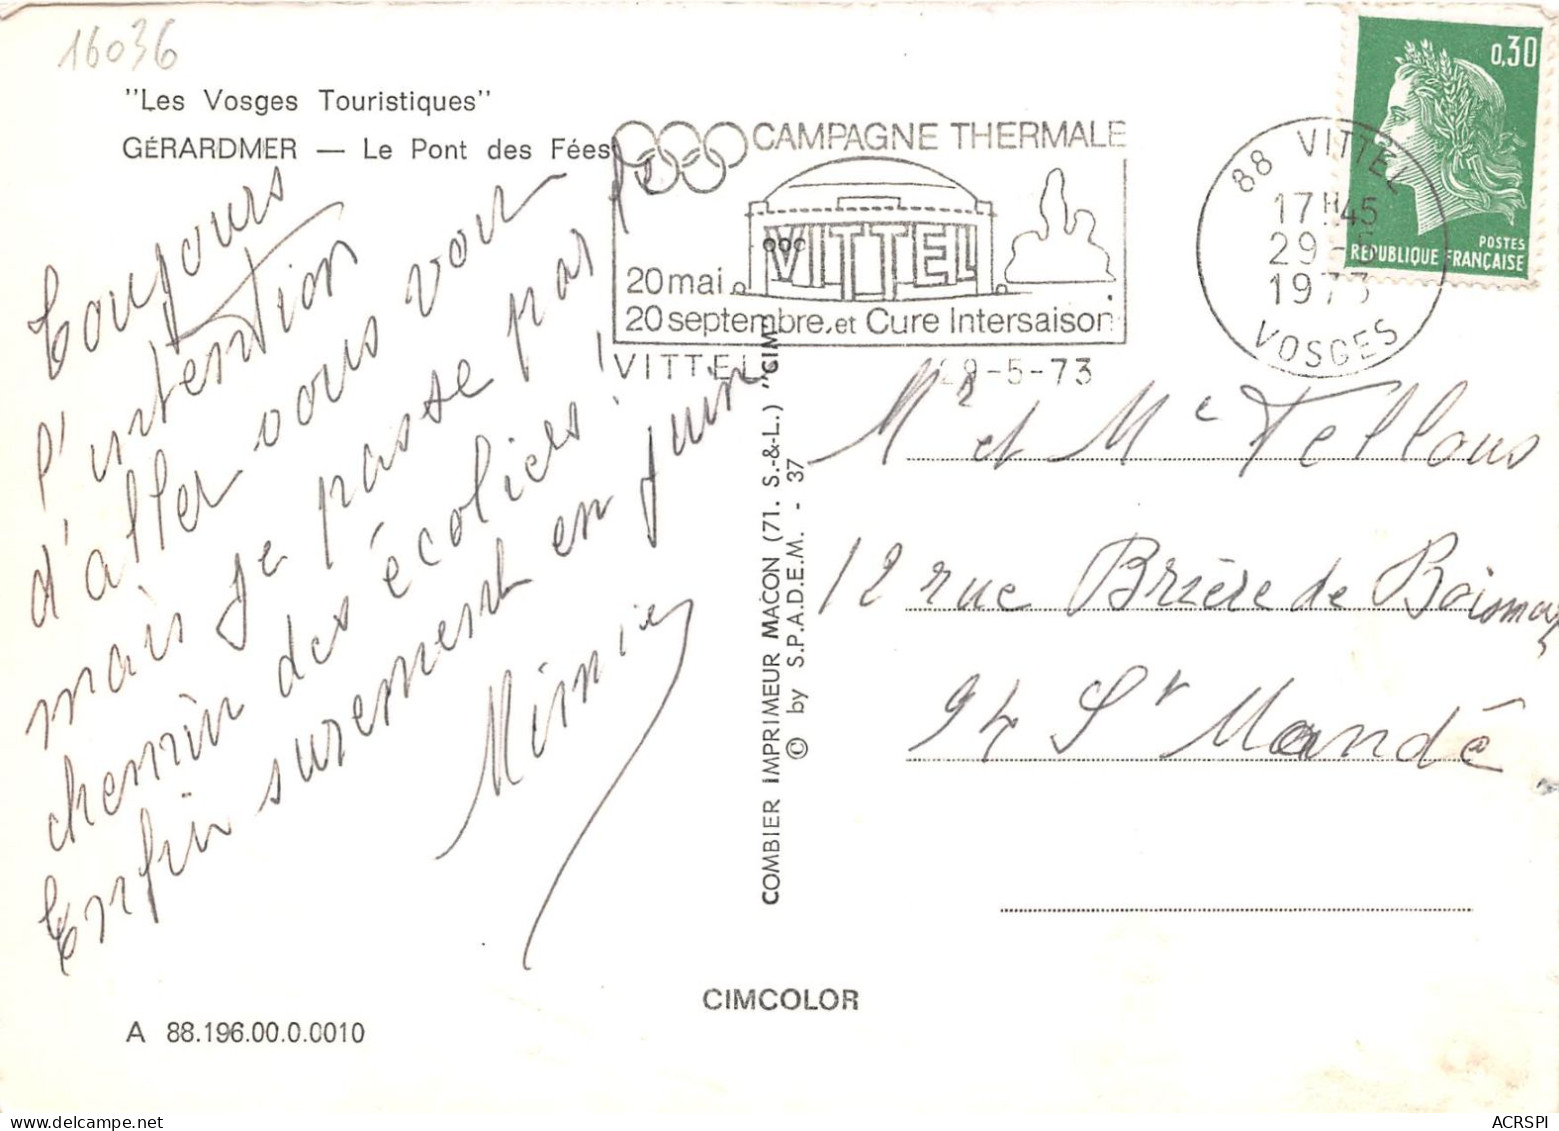 16036
"Les Vosges Touristiques"
GÉRARDMER — Le Pont des Fées
Toujours
l'intention
d'aller vous voir
mais je passe pas le
chemin des écoliers !
Enfin surement en juin
Mimie
CAMPAGNE THERMALE
VITTEL
20 mai
20 septembre. et Cure Intersaison
VITTEL
29-5-73
88 VITTEL
17H45
29-5
1973
VOSGES
0,30
POSTES
REPUBLIQUE FRANÇAISE
Mr et Me Tellous
12 rue Brière de Boismont
94 St Mandé
COMBIER IMPRIMEUR MACON (71. S.-&-L.) "CIM"
© by S.P.A.D.E.M. - 37
CIMCOLOR
A 88.196.00.0.0010
ACRSPI